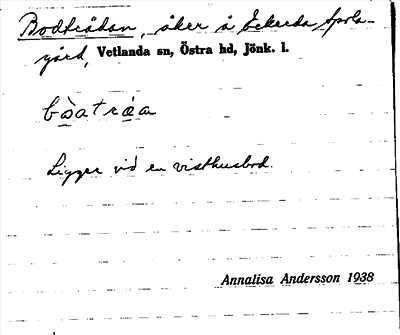 Bodträdan, åker å Ekerda Spela-
gård, Vetlanda sn, Östra hd, Jönk. l.
Ligger vid en visthusbod.
Annalisa Andersson 1938